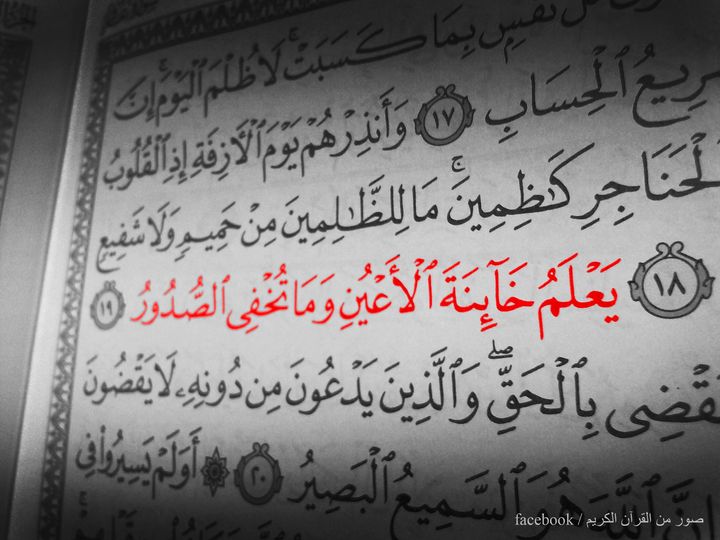 نَفْسٍ بِمَا كَسَبَتْ ۚ لَا ظُلْمَ ٱلْيَوْمَ ۚ إِنَّ
سَرِيعُ ٱلْحِسَابِ ١٧ وَأَنذِرْهُمْ يَوْمَ ٱلْءَازِفَةِ إِذِ ٱلْقُلُوبُ
ٱلْحَنَاجِرِ كَٰظِمِينَ ۚ مَا لِلظَّٰلِمِينَ مِنْ حَمِيمٍ وَلَا شَفِيعٍ
١٨ يَعْلَمُ خَآئِنَةَ ٱلْأَعْيُنِ وَمَا تُخْفِى ٱلصُّدُورُ ١٩
يَقْضِى بِٱلْحَقِّ ۖ وَٱلَّذِينَ يَدْعُونَ مِن دُونِهِۦ لَا يَقْضُونَ
إِنَّ ٱللَّهَ هُوَ ٱلسَّمِيعُ ٱلْبَصِيرُ ٢٠ ۞ أَوَلَمْ يَسِيرُوا۟ فِى
facebook / صور من القرآن الكريم